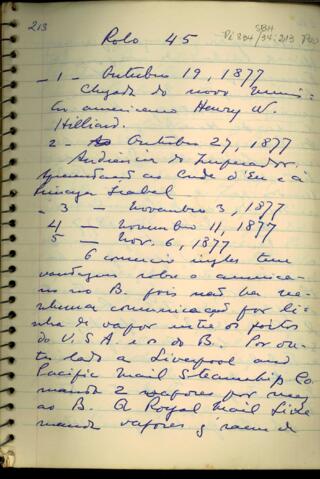 213
SBH
Pi 834 / 94:213 P20
Rolo 45
- 1 - Outubro 19, 1877
Chegada do novo minis-
tro americano Henry W.
Hilliard.
2 - Outubro 27, 1877
Audiencia do Imperador.
apresentação ao Conde d'Eu e à
Princeza Isabel
- 3 - novembro 3, 1877
4 - novembro 11, 1877
5 - Nov. 6, 1877
O comercio ingles tem
vantagens sobre o america-
no no B. pois não ha ne-
nhuma comunicação por li-
nha de vapor entre os portos
do U.S.A. e os do B. Por ou-
tro lado a Liverpool and
Pacific Mail Steamship Co.
manda 2 vapores por mez
ao B. A Royal Mail Line
manda vapores q' saem de